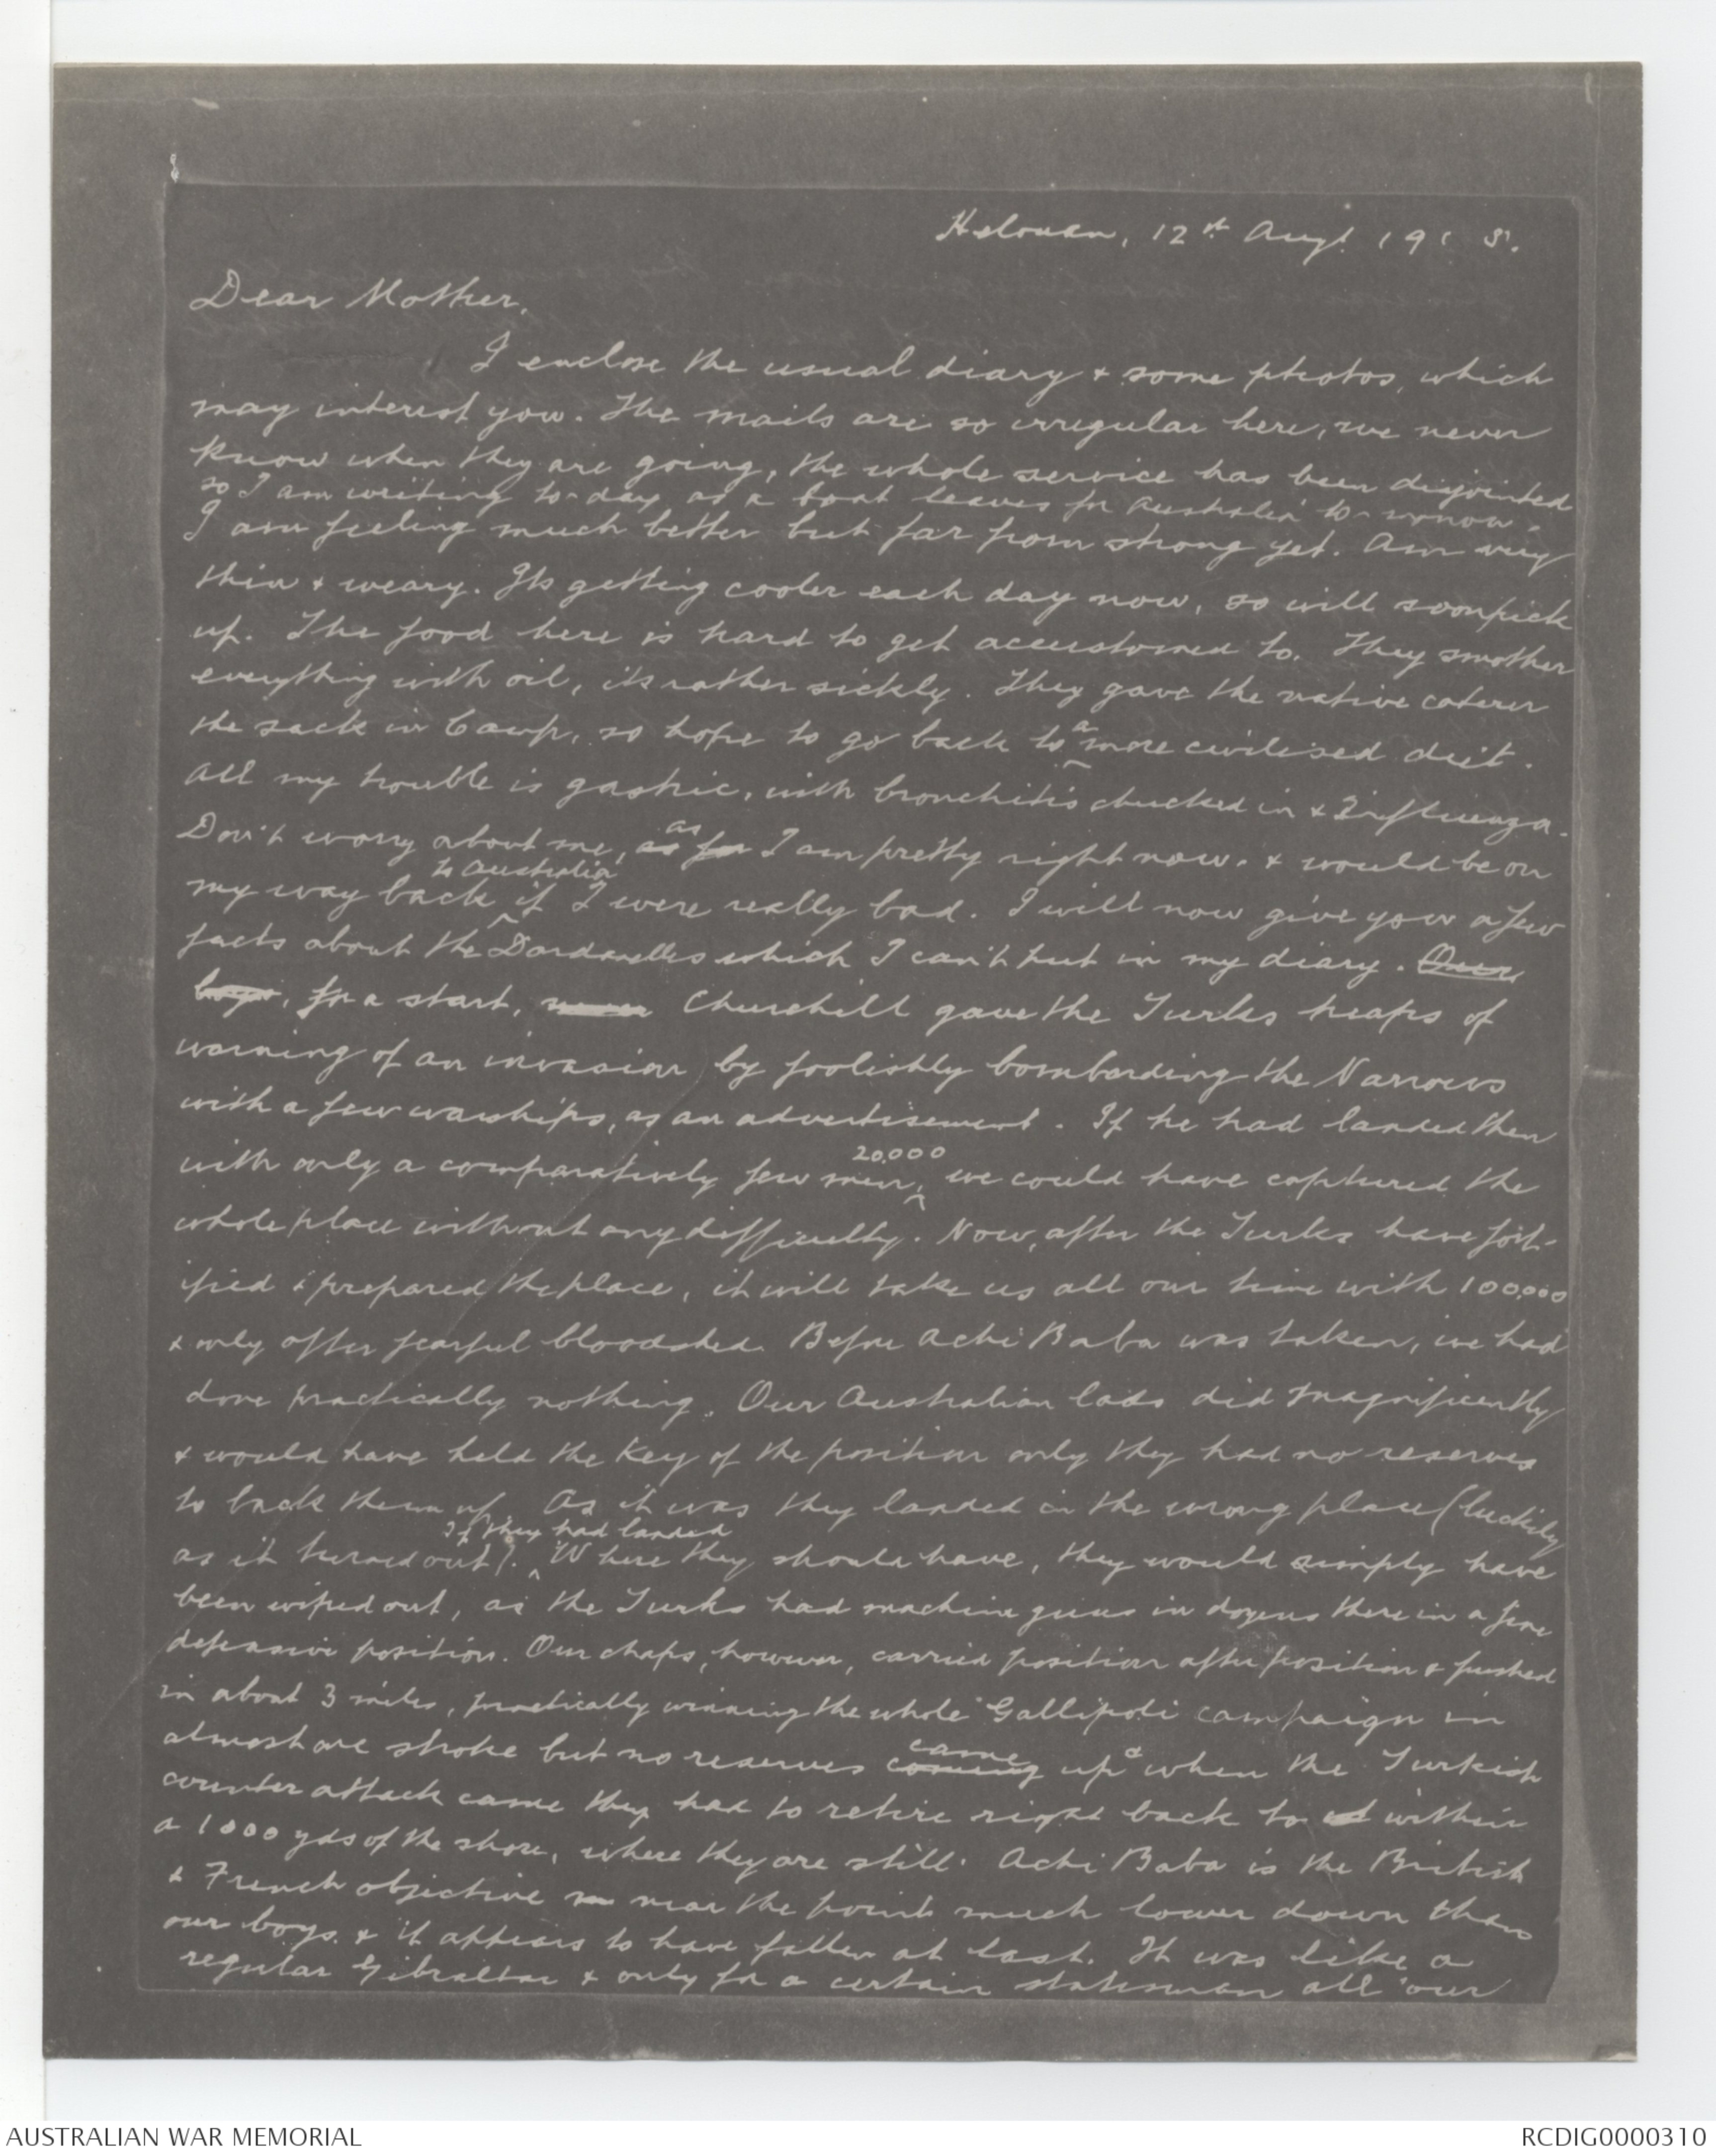 Helouan, 12th Augt. 1915.
Dear Mother,
I enclose the usual diary & some photos, which
may interest you. The mails are so irregular here, we never
know when they are going, the whole service has been disjointed
so I am writing to-day, as a boat leaves for Australia to-morrow.
I am feeling much better but far from strong yet. Am very
thin & weary. Its getting cooler each day now, so will soon pick
up. The food here is hard to get accustomed to. They smother
everything with oil, its rather sickly. They gave the native caterer
the sack in Camp, so hope to go back to a more civilised diet.
All my trouble is gastric, with bronchitis chucked in & Influenza.
Don't worry about me, as I am pretty right now. & would be on
my way back to Australia if I were really bad. I will now give you a few
facts about the Dardanelles which I can't put in my diary. Our
boys, for a start, Churchill gave the Turks heaps of
warning of an invasion by foolishly bombarding the Narrows
with a few warships, as an advertisement. If he had landed then
with only a comparatively few men, 20,000 we could have captured the
whole place without any difficulty. Now, after the Turks have fort-
ified & prepared the place, it will take us all our time with 100,000
& only after fearful bloodshed. Before Achi Baba was taken, we had
done practically nothing. Our Australian lads did magnificently
& would have held the key of the position only they had no reserves
to back them up. As it was they landed in the wrong place (luckily
as it turned out). If they had landed Where they should have, they would simply have
been wiped out, as the Turks had machine guns in dozens there in a fine
defensive position. Our chaps, however, carried position after position & pushed
in about 3 miles, practically winning the whole Gallipoli campaign in
almost one stroke but no reserves coming came up & when the Turkish
counter attack came they had to retire right back to within
a 1000 yds of the shore, where they are still. Achi Baba is the British
& French objective near the point much lower down than
our boys. & it appears to have fallen at last. It was like a
regular Gibraltar & only for a certain statesman all our
AUSTRALIAN WAR MEMORIAL
RCDIG0000310